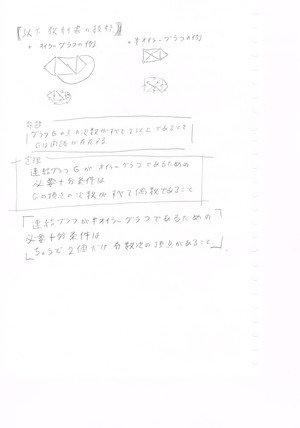 【以下 教科書の抜粋】
• オイラーグラフの例
• 半オイラーグラフの例
補題
グラフGの点の次数がすべて2以上であること
Gは閉路が存在する
定理
連結グラフGがオイラーグラフであるための
必要十分条件は
Gの頂点の次数がすべて偶数であること
連結グラフが半オイラーグラフであるための
必要十分条件は
ちょうど2個だけ奇数次の頂点があること